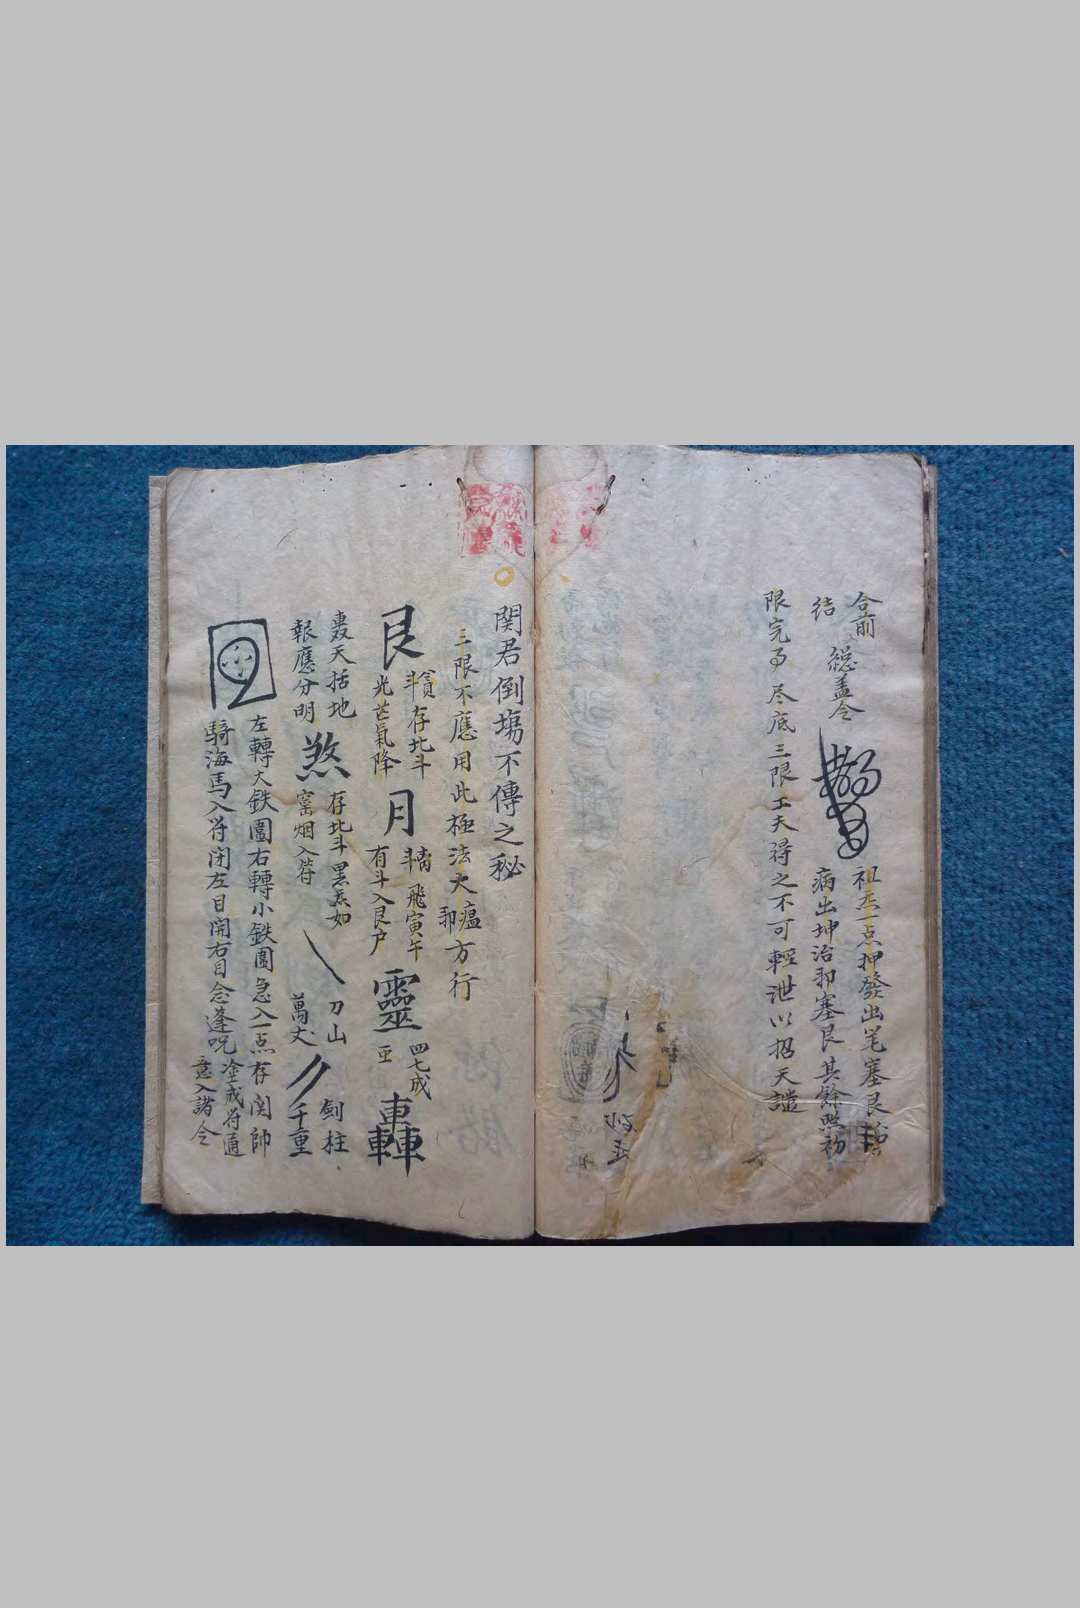 合前
結
總盖令
祖炁一点押發出笔塞艮
病出坤治邪塞艮其餘照初
限完了尽底三限工夫得之不可輕泄以招天譴
関君倒塲不傳之秘
三限不應用此極法大瘟方行
邪
艮
存北斗
光芒氣降
月
飛寅午
有斗入艮户
靈
四七成
轟
轟天括地
報應分明
煞
存北斗黑炁如
窰烟入符
刀山
萬丈
劍柱
千重
左轉大鉄圍右轉小鉄圍急入一点存関帥
騎海馬入符闭左目開右目念逢咒
塗戒符通
意入諸令